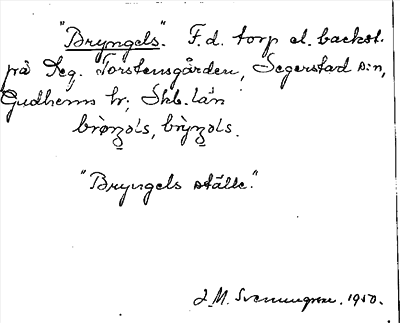 "Bryngels." F.d. torp el. backst.
på Reg. Torstensgården, Segerstad s:n,
Gudhems hr; Skb. län
brøŋəls, bryŋəls.
"Bryngels ställe."
J.M. Svenungsson. 1950.